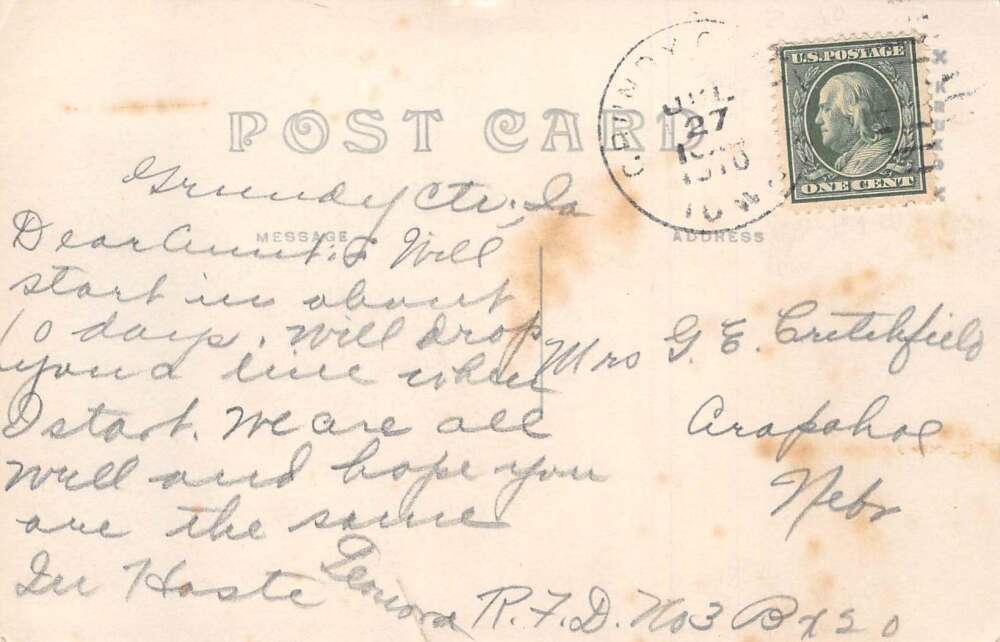 POST CARD
GRUNDY C
JUL
27
1910
IOWA
U.S. POSTAGE
ONE CENT
MESSAGE
ADDRESS
Grundy Ctr, Ia
Dear Aunt. I Will
start in about
10 days. Will drop
you a line when
I start. We are all
well and hope you
are the same
In Haste
Leonora
Mrs G. E. Critchfield
Arapahoe
Nebr
R.F.D. No3 Bx 20